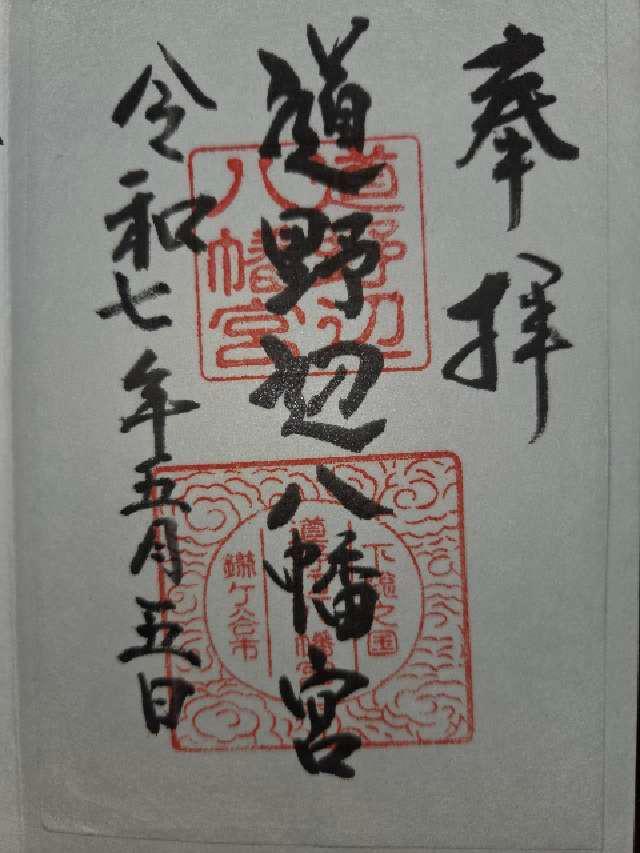 奉拝
道野辺八幡宮
令和七年五月五日
道野辺
八幡宮
下總之国
道野辺八幡宮
鎌ケ谷市